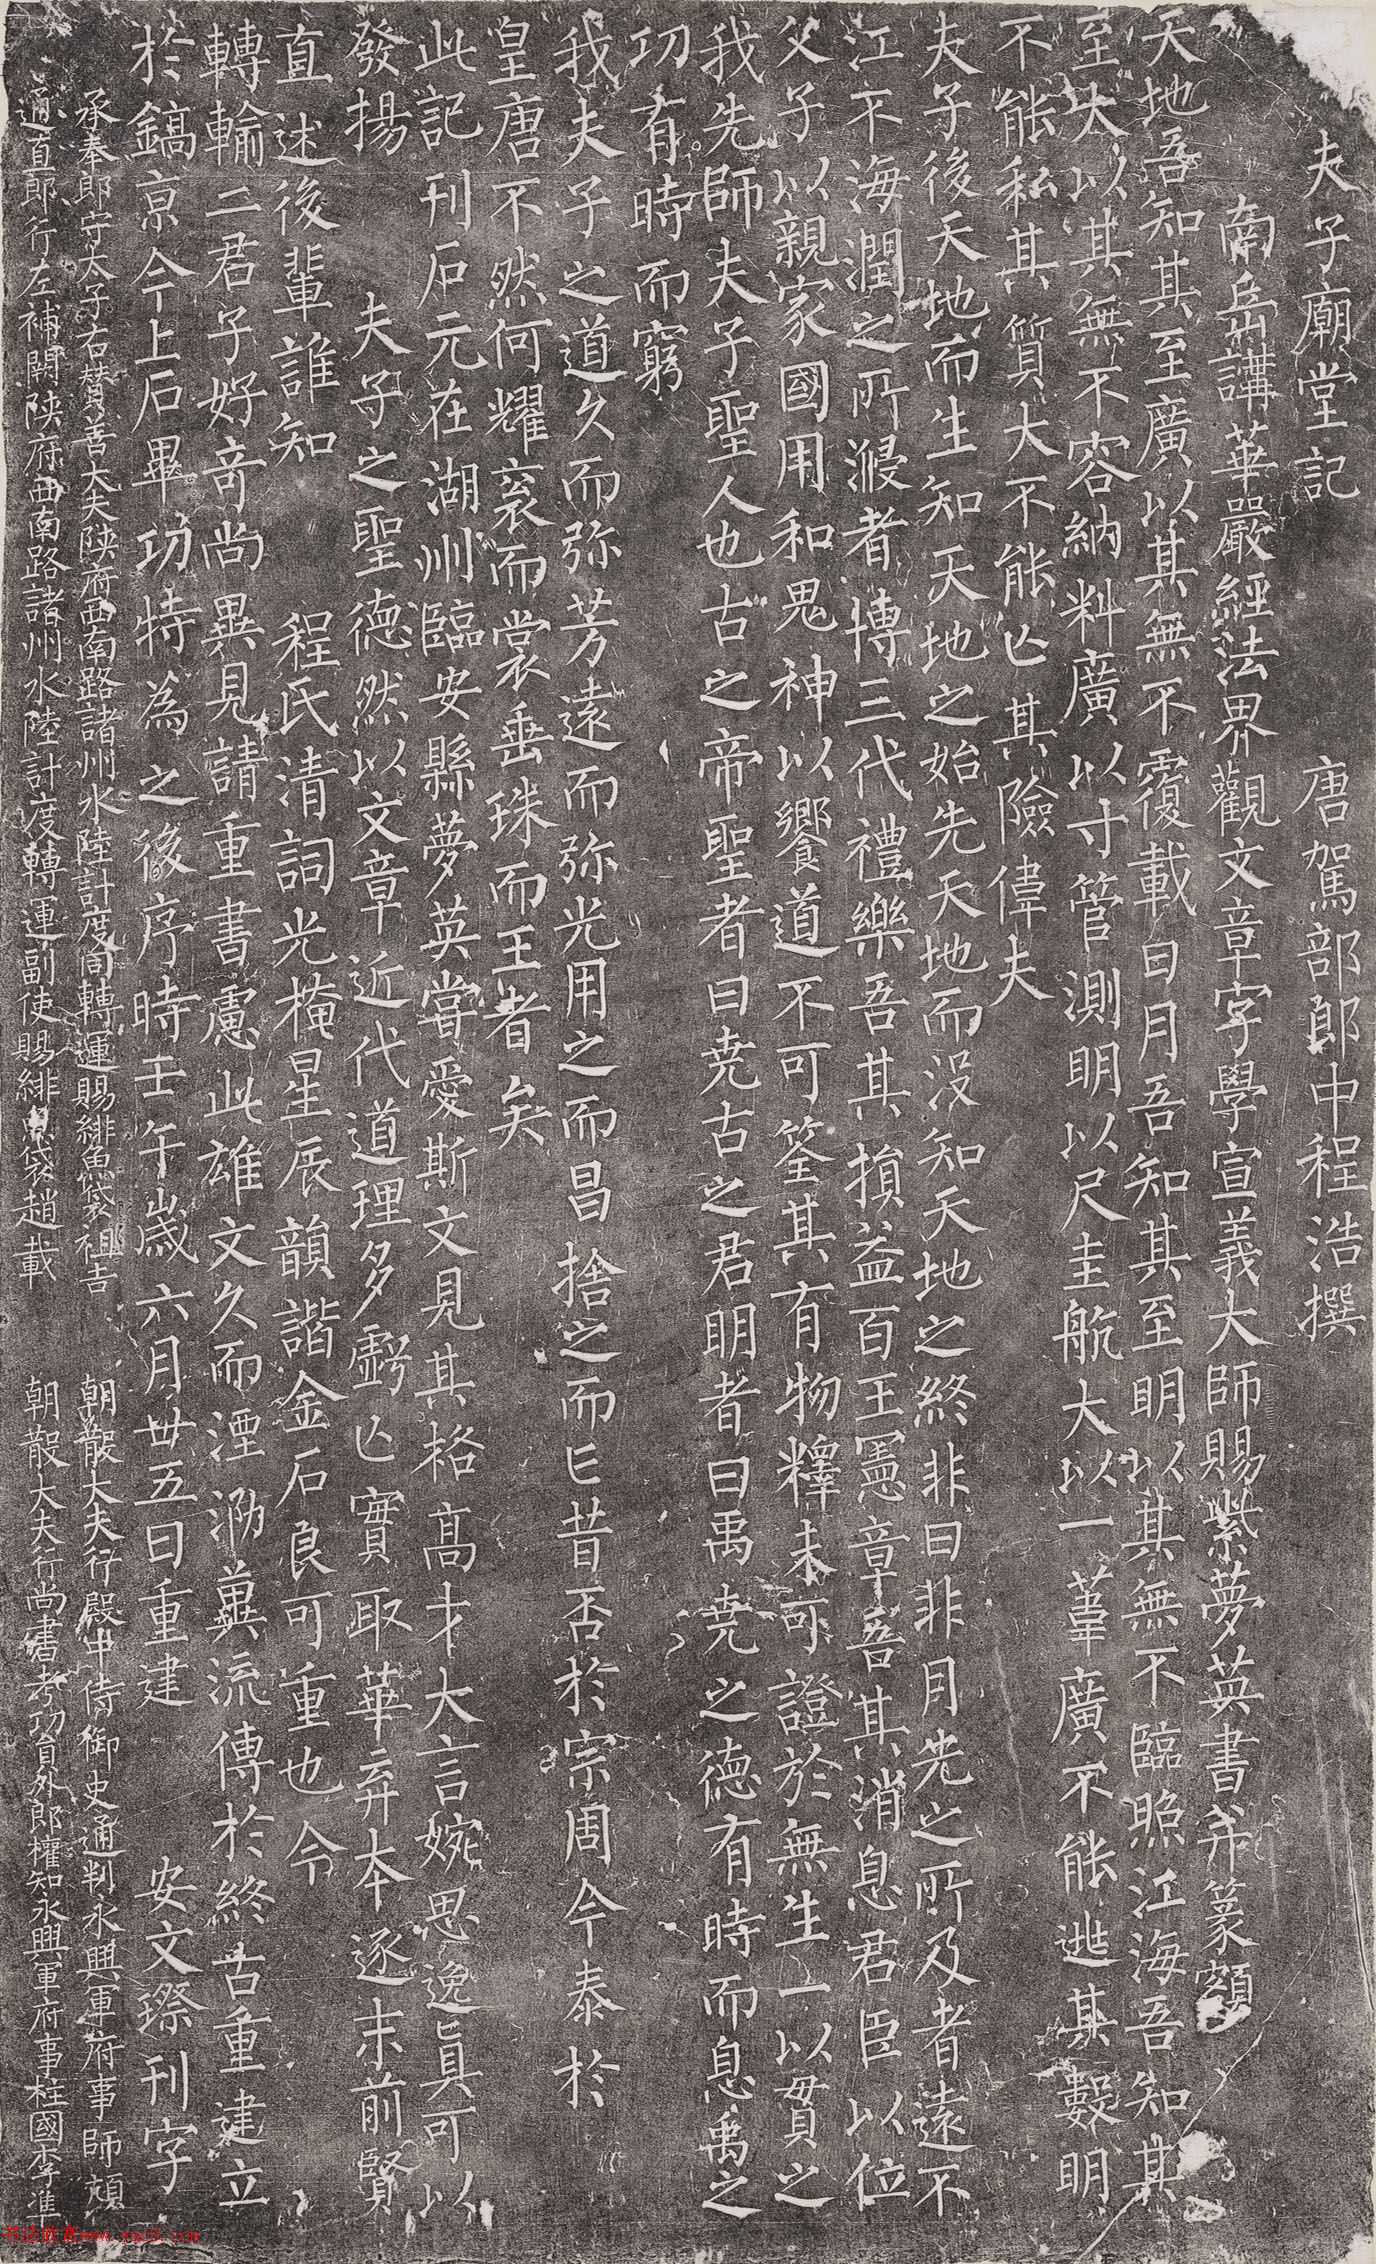 夫子廟堂記　唐駕部郎中程浩撰
南岳講華嚴經法界觀文章字學宣義大師賜紫夢英書并篆額
天地吾知其至廣以其無不覆載日月吾知其至明以其無不臨照江海吾知其
至大以其無不容納料廣以寸管測明以尺圭航大以一葦廣不能逃其數明
不能私其質大不能亾其險偉夫
夫子後天地而生知天地之始先天地而没知天地之終非日非月光之所及者遠不
江不海潤之所浸者博三代禮樂吾其損益百王憲章吾其消息君臣以位
父子以親家國用和鬼神以饗道不可筌其有物釋未可證於無生一以貫之
我先師夫子聖人也古之帝聖者曰尭古之君明者曰禹尭之德有時而息禹之
功有時而窮
我夫子之道久而弥芳遠而弥光用之而昌捨之而亡昔否於宗周今泰於
皇唐不然何耀衮而裳垂珠而王者矣
此記刊石元在湖州臨安縣夢英甞愛斯文見其格高才大言婉思逸真可以
發揚　夫子之聖德然以文章近代道理多虧亾實取華弃本逐末前賢
直述後輩誰知　程氏清詞光掩星辰韻諧金石良可重也今
轉輸二君子好奇尚異見請重書慮此雄文久而湮泐兾流傳於終古重建立
於鎬京今上石畢功特為之後序時壬午歲六月廿五日重建　安文璨刊字
承奉郎守太子右贊善大夫陝府西南路諸州水陸計度同轉運賜緋魚袋祖吉　朝散大夫行殿中侍御史通判永興軍府事師頏
通直郎行左補闕陝府西南路諸州水陸計度轉運副使賜緋魚袋趙載　朝散大夫行尚書考功員外郎權知永興軍府事柱國李準
书法欣赏www.yac8.com